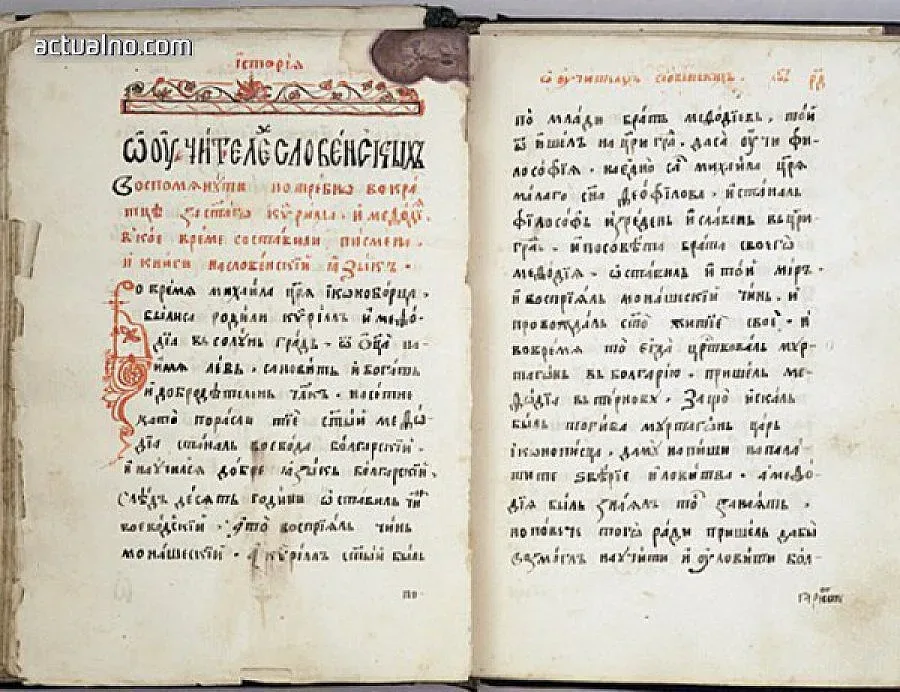 actualno.com
їсторїа
Ѡ ОУЧИТЕЛЕ̑Х СЛОВЕНСКЫХЪ
Воспомянути потребно вокра
тце за стаго Кѵрила, и Меѳодїа,
в кое време составили писмена,
и книги на словенскїй ꙗзыкъ.
Во время михаила цр҃я їконоборца,
былиса родили кѵрилъ и меѳо-
дїа въ солунь градъ. ѿ ѻц҃а на
имя левъ, сановитъ и богатъ
и добродѣтелнь чл҃къ. насетне
като порасли тїе ст҃ый меѳо
дїа сталъ воевода болгарскїй.
и научился добре ꙗзыкъ болгарскїй.
Следъ десять години ѡставилъ чи
воеводскїй. и то воспрїялъ чинь
монашескїй. А кѵрилъ ст҃ый былъ
по-
ѡ учителехъ словенскихъ.
по млади братъ меѳодїевъ, той
ѿишелъ на цри град, даса учи фи-
лософїя. наедно са михаила цр҃я
малаго сн҃а Ѳеофилова. и станалъ
фїлософъ изреденъ и славенъ въ цри
град. и по совѣта брата своего
меѳодїя. ѡставилъ и той миръ.
и воспрїялъ монашескїй чинь. и
провождалъ ст҃о житїе свое. и
во время то егда цр҃твовалъ мур-
тагонъ въ болгарию. пришелъ ме-
ѳодїа въ тернову. Защо искалъ
былъ тогива муртагонъ царь
їконописца, да му напиши на пала
тите ѕверїе и ловитва. а меѳо-
дїа былъ зналъ то занаять.
но повыше того ради пришелъ дабы
возмоглъ научити и уловити бол-
гаръ